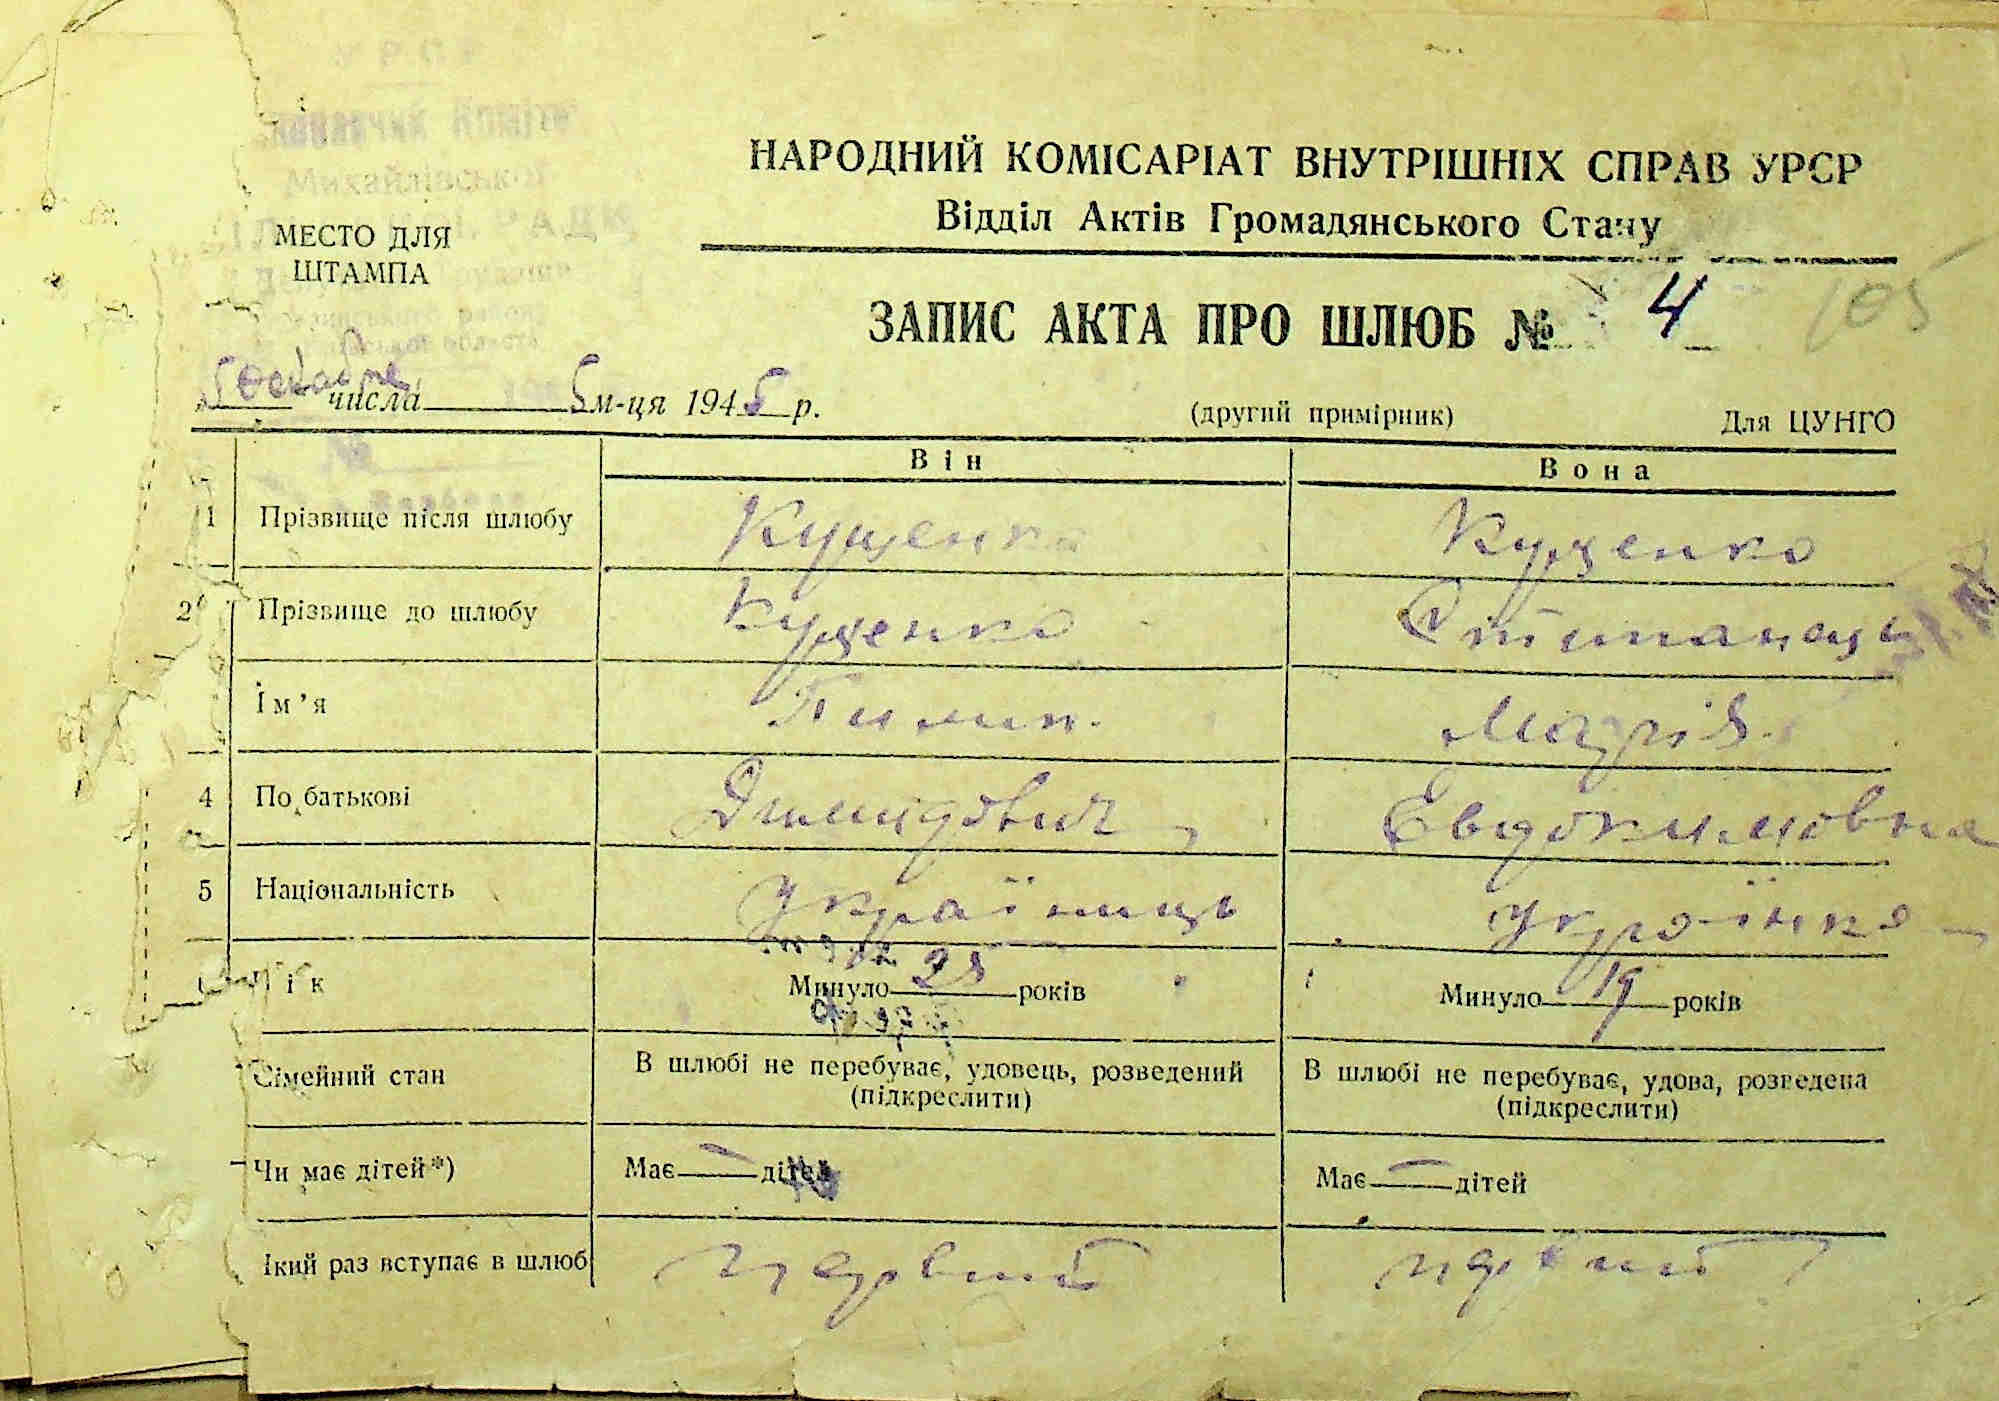 У Р С Р
Михайлівської
НАРОДНИЙ КОМІСАРІАТ ВНУТРІШНІХ СПРАВ УРСР
Відділ Актів Громадянського Стану
МЕСТО ДЛЯ
ШТАМПА
ЗАПИС АКТА ПРО ШЛЮБ № 4
105
5 декабре числа 5 м-ця 1945 р.
(другий примірник) Для ЦУНГО
Він Вона
1 Прізвище після шлюбу Кущенко Кущенко
2 Прізвище до шлюбу Кущенко
Ім'я Пилип. Марія.
4 По батькові Димидович Евдокимовна
5 Національність Українець Українка
ік Минуло 25 років Минуло 19 років
Сімейний стан В шлюбі не перебуває, удовець, розведений (підкреслити) В шлюбі не перебуває, удова, розведена (підкреслити)
Чи має дітей*) Має — дітей Має — дітей
який раз вступає в шлюб первий первий